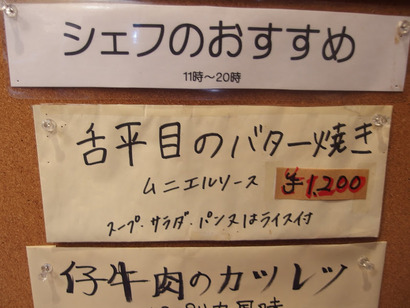 シェフのおすすめ
11時～20時
舌平目のバター焼き
ムニエルソース ¥1,200
スープ・サラダ・パン又はライス付
仔牛肉のカツレツ
風味